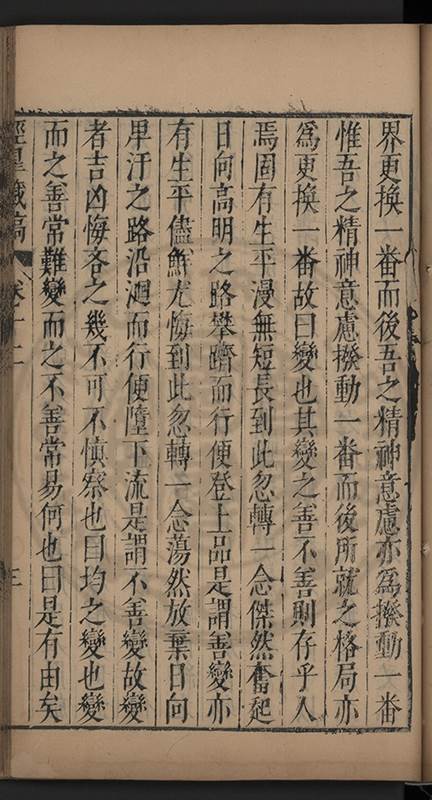 界更換一番而後吾之精神意慮亦為撥動一番
惟吾之精神意慮撥動一番而後所就之格局亦
為更換一番故曰變也其變之善不善則存乎人
焉固有生平漫無短長到此忽轉一念傑然奮起
日向高明之路攀躋而行便登上品是謂善變亦
有生平儘鮮尤悔到此忽轉一念蕩然放棄日向
卑汙之路沿洄而行便墮下流是謂不善變故變
者吉凶悔吝之幾不可不慎察也曰均之變也變
而之善常難變而之不善常易何也曰是有由矣
涇臯藏稿
卷十二
三